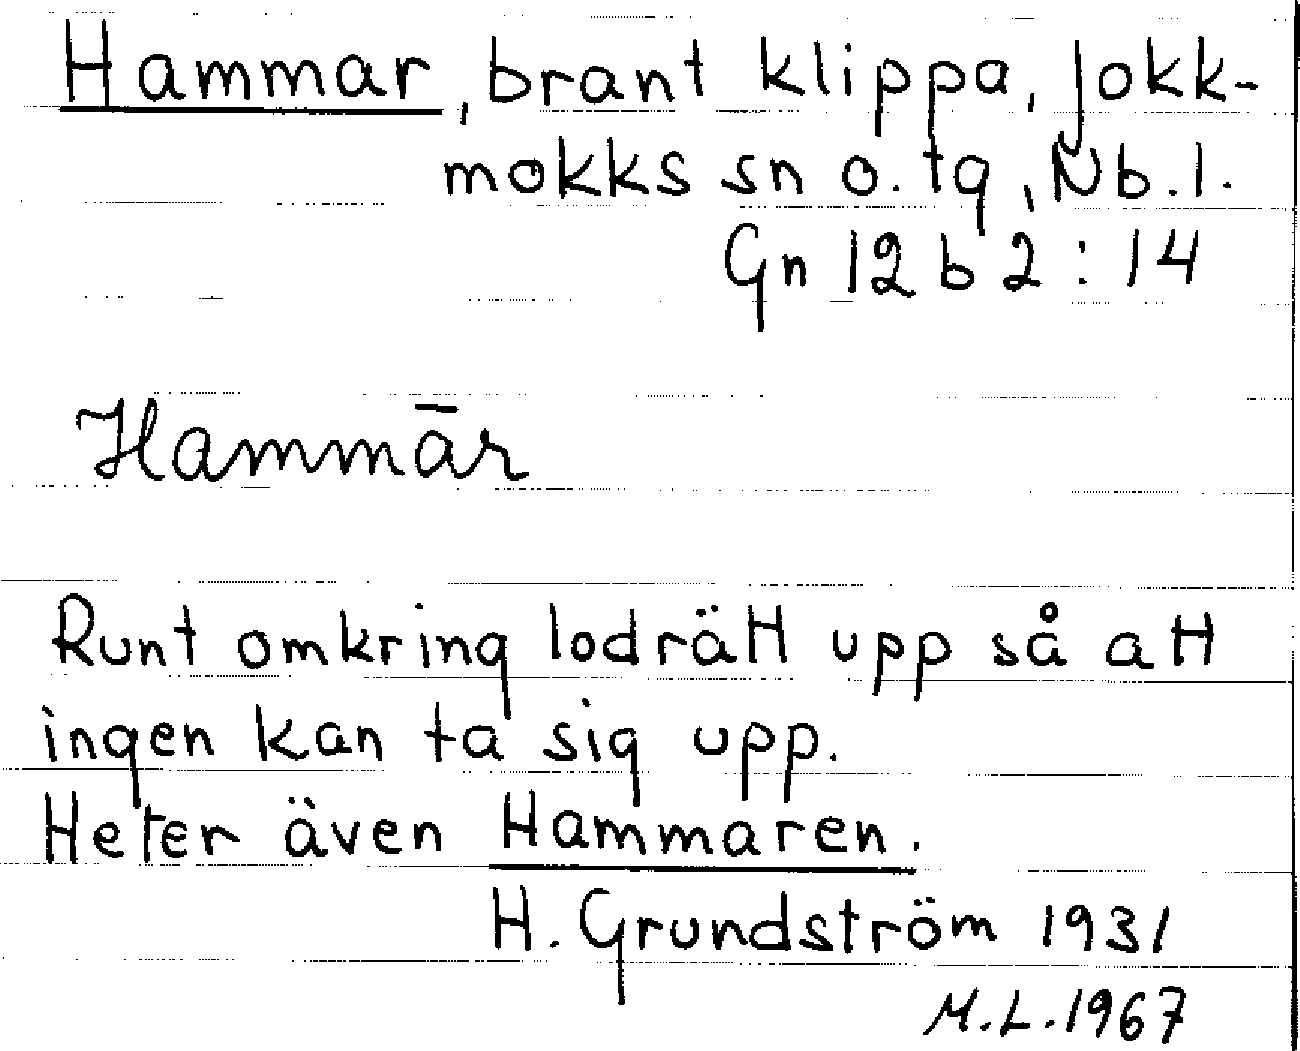 Hammar, brant klippa, Jokk-
mokks sn o. tg, Nb. l.
Gn 12 b 2 : 14
Hammār
Runt omkring lodrätt upp så att
ingen kan ta sig upp.
Heter även Hammaren.
H. Grundström 1931
M.L. 1967